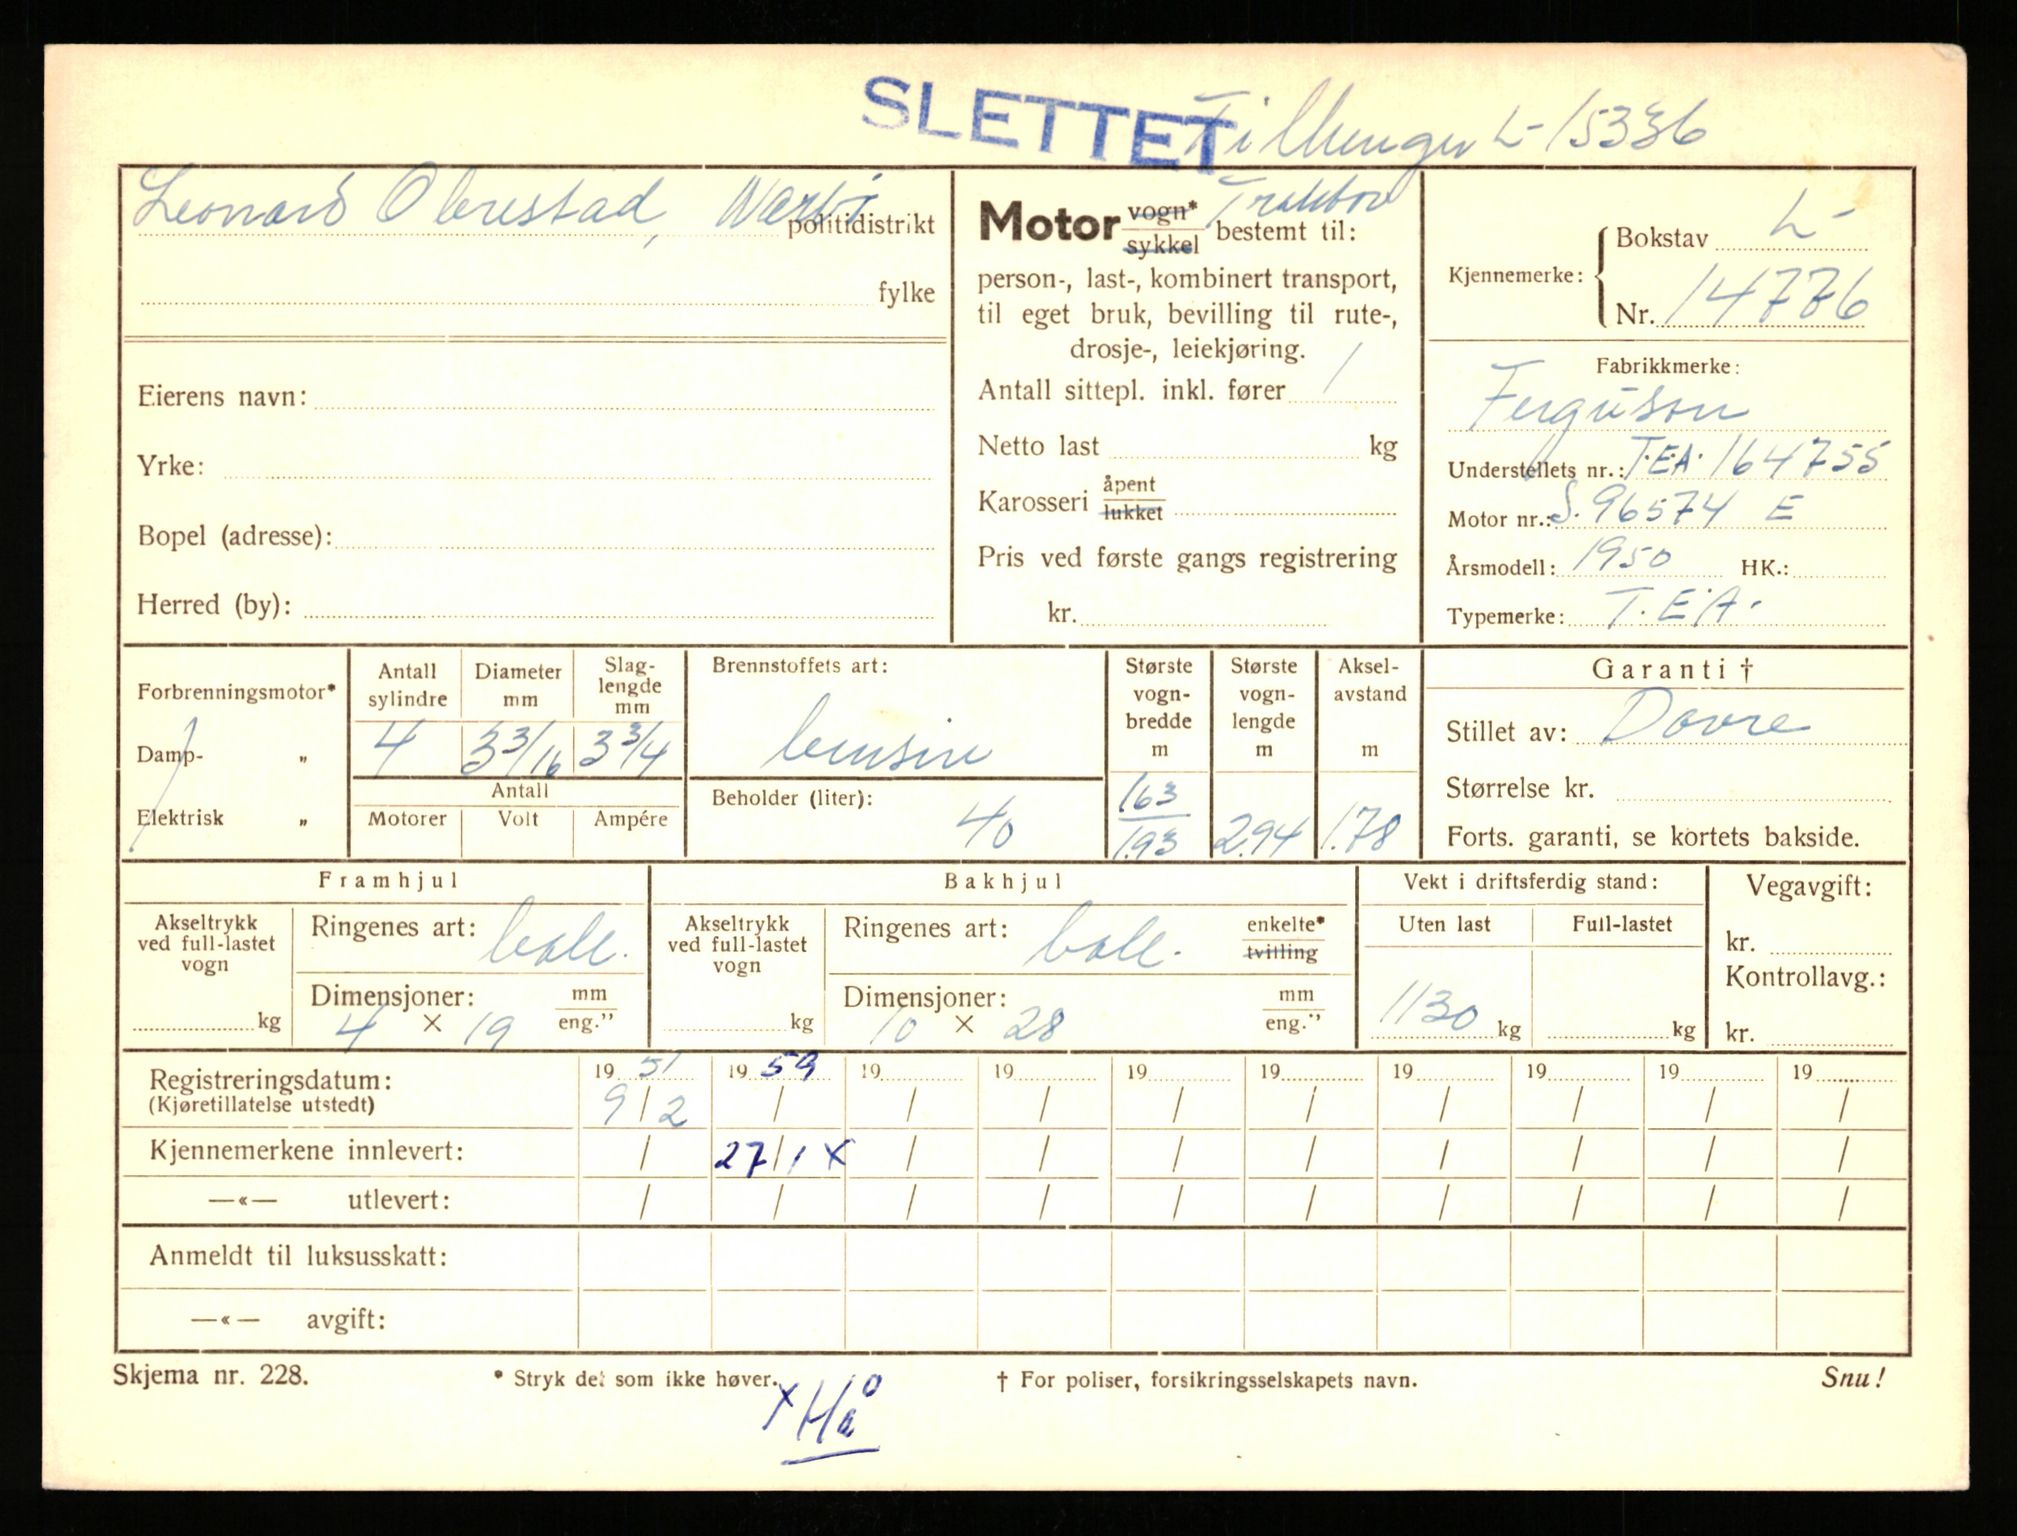 SLETTET Tilhenger L-15336
Leonard Obrestad, Nærbø politidistrikt
fylke
Eierens navn:
Yrke:
Bopel (adresse):
Herred (by):
Motor vogn* Traktor
sykkel bestemt til:
person-, last-, kombinert transport,
til eget bruk, bevilling til rute-,
drosje-, leiekjøring.
Antall sittepl. inkl. fører 1
Netto last kg
Karosseri åpent
lukket
Pris ved første gangs registrering
kr.
Kjennemerke: Bokstav L-
Nr. 14776
Fabrikkmerke:
Ferguson
Understellets nr.: T.E.A. 164755
Motor nr.: S. 96574 E
Årsmodell: 1950 HK.:
Typemerke: T.E.A.
Forbrenningsmotor*
Damp- „
Elektrisk „
Antall sylindre
4
Diameter mm
3 3/16
Slag-
lengde
mm
3 3/4
Antall
Motorer Volt Ampére
Brennstoffets art:
bensin
Beholder (liter):
40
Største
vogn-
bredde
m
163
1.93
Største
vogn-
lengde
m
2.94
Aksel-
avstand
m
1.78
Garanti †
Stillet av: Dovre
Størrelse kr.
Forts. garanti, se kortets bakside.
Framhjul
Akseltrykk
ved full-lastet
vogn
kg
Ringenes art: ball.
Dimensjoner: mm
4 × 19 eng.”
Bakhjul
Akseltrykk
ved full-lastet
vogn
kg
Ringenes art: ball. enkelte*
tvilling
Dimensjoner: mm
10 × 28 eng.”
Vekt i driftsferdig stand:
Uten last Full-lastet
1130 kg kg
Vegavgift:
kr.
Kontrollavg.:
kr.
Registreringsdatum: 19 51 19 59 19 19 19 19 19 19 19 19
(Kjøretillatelse utstedt) 9/2 / / / / / / / / /
Kjennemerkene innlevert: / 27/1 x / / / / / / / /
—«— utlevert: / / / / / / / / / /
Anmeldt til luksusskatt:
—«— avgift:
Skjema nr. 228. * Stryk det som ikke høver. † For poliser, forsikringsselskapets navn. Snu!
x Hå